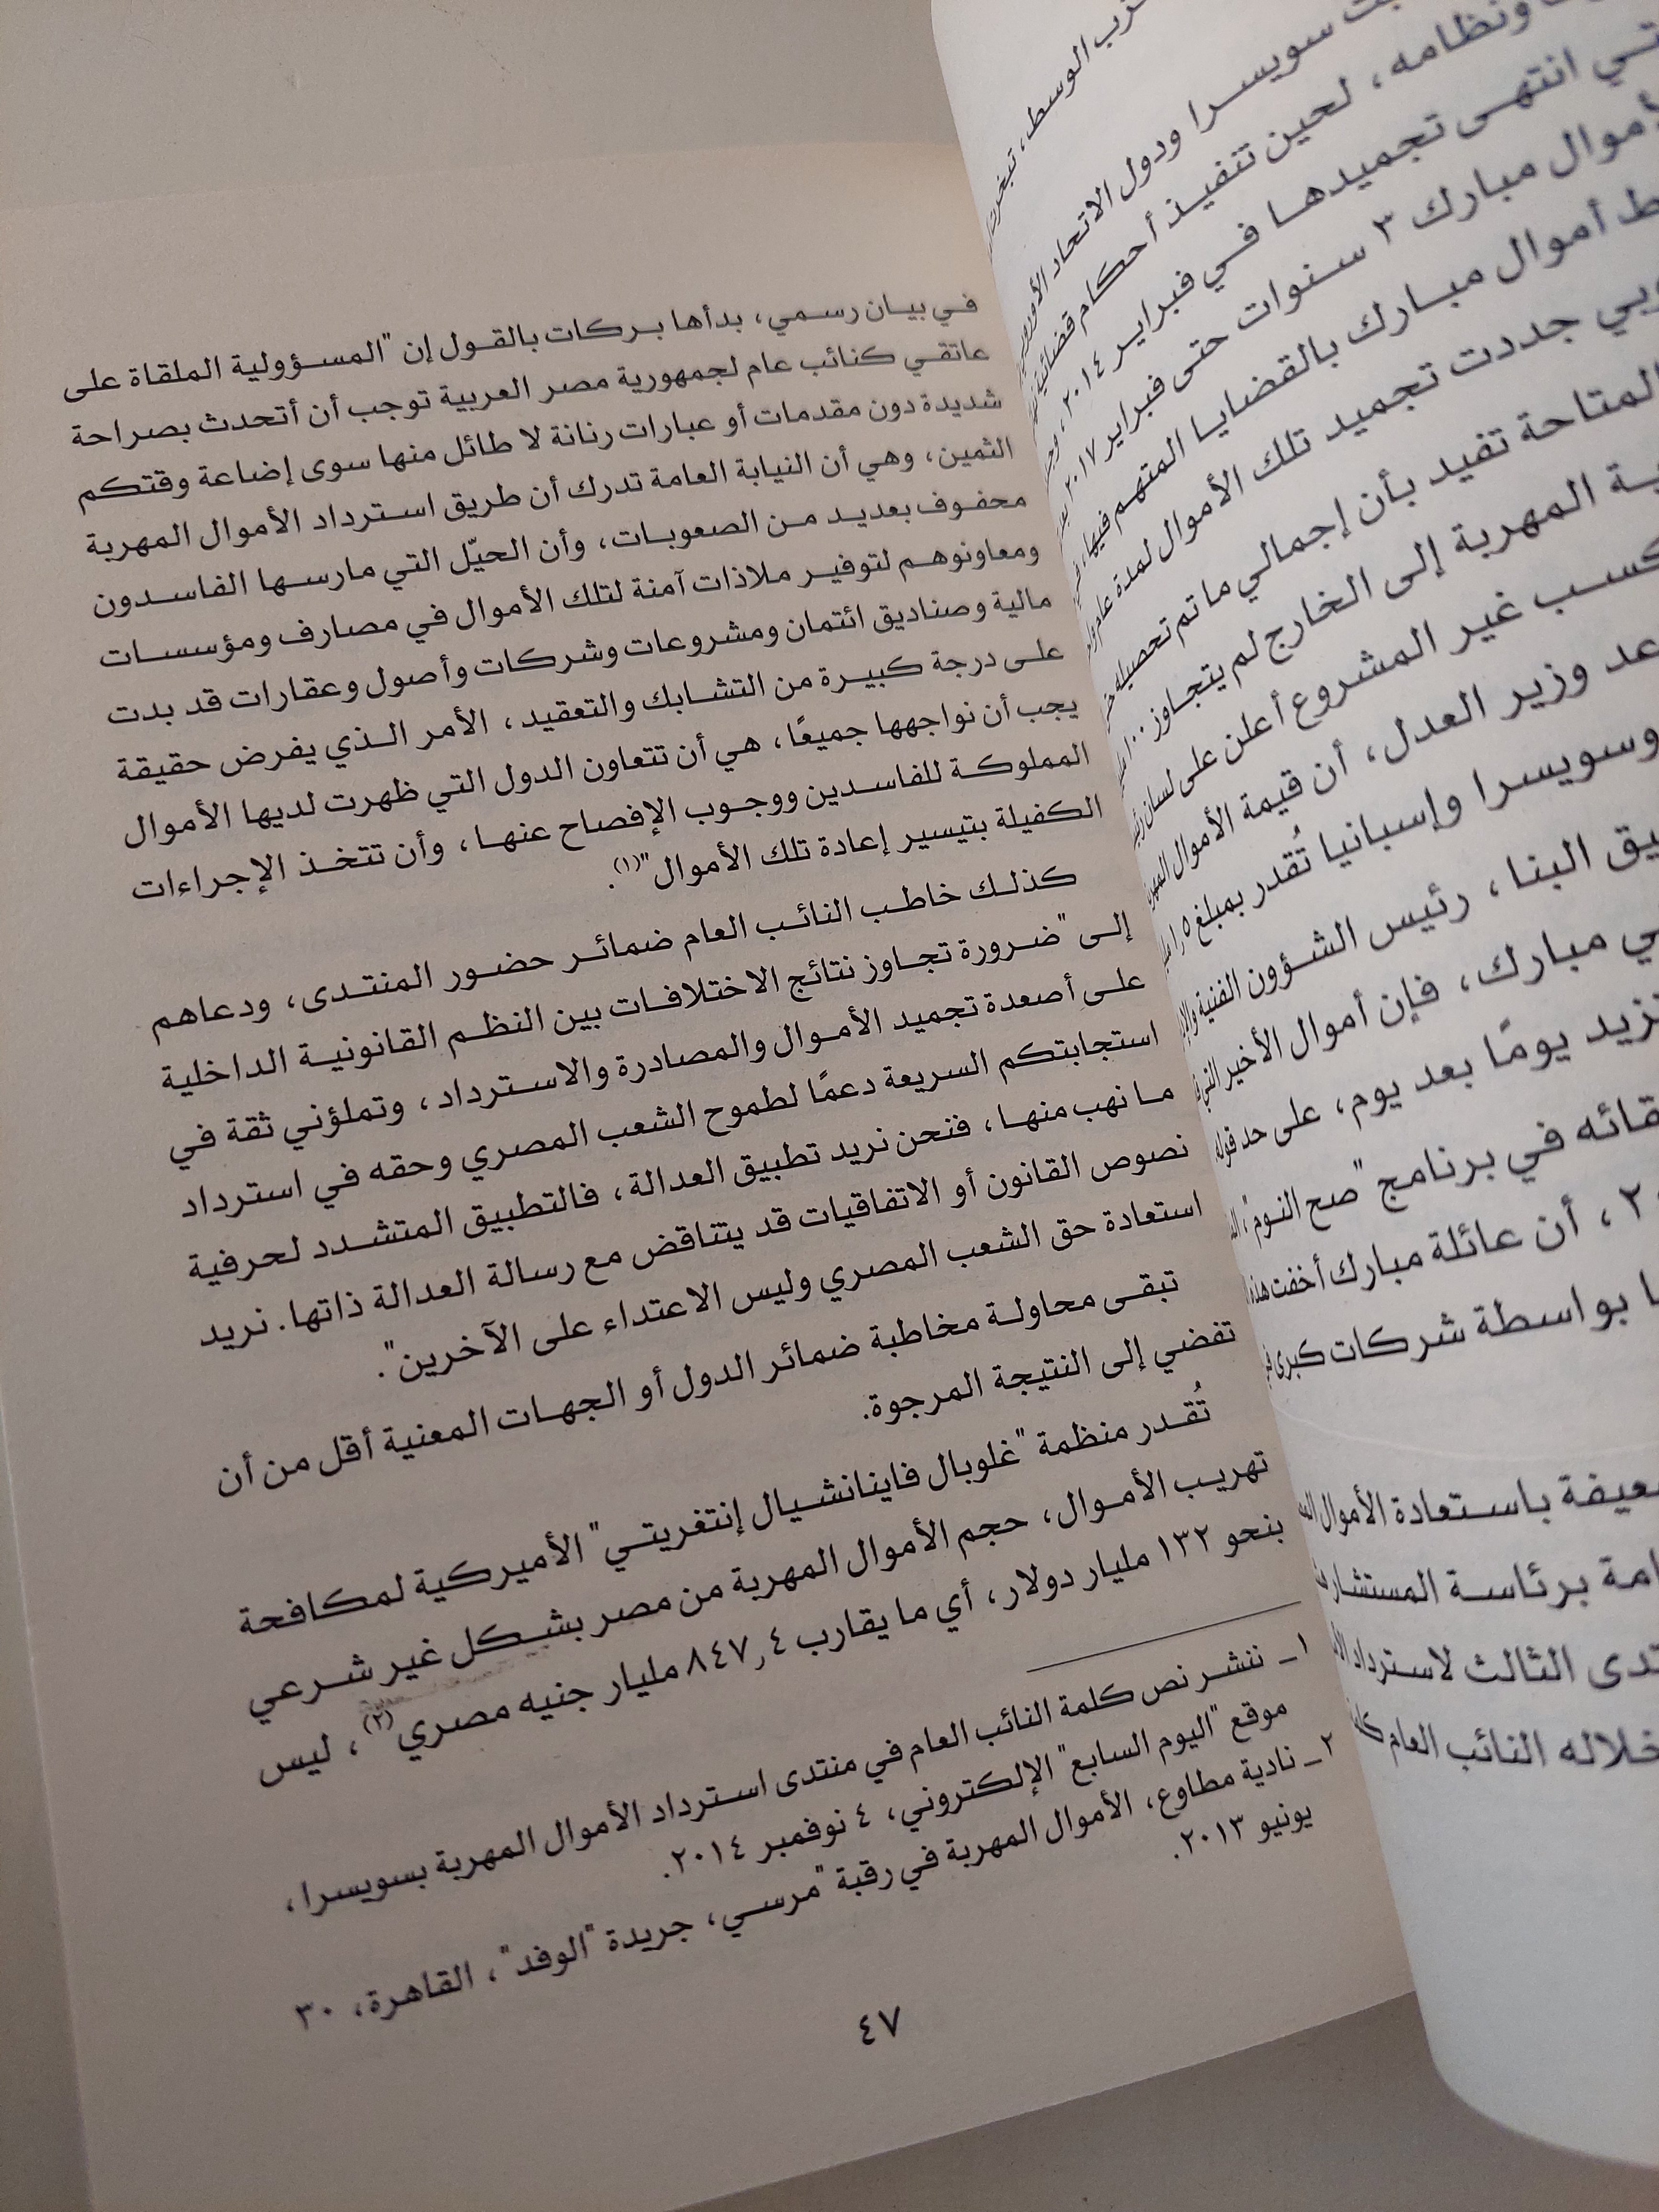 حزب الوسط، تبخرت
سويسرا ودول الاتحاد الأوروبي
ونظامه، لحين تنفيذ أحكام قضائية
انتهى تجميدها في فبراير ٢٠١٤،
أموال مبارك ٣ سنوات حتى فبراير ٢٠١٧
أموال مبارك بالقضايا المتهم فيها،
جددت تجميد تلك الأموال لمدة عام
المتاحة تفيد بأن إجمالي ما تم تحصيله
المهربة إلى الخارج لم يتجاوز ١٠٠
غير المشروع أعلن على لسان
وزير العدل، أن قيمة الأموال
وسويسرا وإسبانيا تُقدر بمبلغ
البنا، رئيس الشؤون الفنية
مبارك، فإن أموال الأخير
تزيد يومًا بعد يوم، على حد قوله
في برنامج "صح النوم"،
أن عائلة مبارك أخفت هذه
بواسطة شركات كبرى
باستعادة الأموال
برئاسة المستشار
الثالث لاسترداد
خلاله النائب العام
في بيان رسمي، بدأها بركات بالقول إن "المسؤولية الملقاة على
عاتقي كنائب عام لجمهورية مصر العربية توجب أن أتحدث بصراحة
شديدة دون مقدمات أو عبارات رنانة لا طائل منها سوى إضاعة وقتكم
الثمين، وهي أن النيابة العامة تدرك أن طريق استرداد الأموال المهربة
محفوف بعديد من الصعوبات، وأن الحيّل التي مارسها الفاسدون
ومعاونوهم لتوفير ملاذات آمنة لتلك الأموال في مصارف ومؤسسات
مالية وصناديق ائتمان ومشروعات وشركات وأصول وعقارات قد بدت
على درجة كبيرة من التشابك والتعقيد، الأمر الذي يفرض حقيقة
يجب أن نواجهها جميعًا، هي أن تتعاون الدول التي ظهرت لديها الأموال
المملوكة للفاسدين ووجوب الإفصاح عنها، وأن تتخذ الإجراءات
الكفيلة بتيسير إعادة تلك الأموال"(١).
كذلك خاطب النائب العام ضمائر حضور المنتدى، ودعاهم
إلى "ضرورة تجاوز نتائج الاختلافات بين النظم القانونية الداخلية
على أصعدة تجميد الأموال والمصادرة والاسترداد، وتملؤني ثقة في
استجابتكم السريعة دعمًا لطموح الشعب المصري وحقه في استرداد
ما نهب منها، فنحن نريد تطبيق العدالة، فالتطبيق المتشدد لحرفية
نصوص القانون أو الاتفاقيات قد يتناقض مع رسالة العدالة ذاتها. نريد
استعادة حق الشعب المصري وليس الاعتداء على الآخرين".
تبقى محاولة مخاطبة ضمائر الدول أو الجهات المعنية أقل من أن
تفضي إلى النتيجة المرجوة.
تُقدر منظمة "غلوبال فاينانشيال إنتغريتي" الأميركية لمكافحة
تهريب الأموال، حجم الأموال المهربة من مصر بشكل غير شرعي
بنحو ١٣٢ مليار دولار، أي ما يقارب ٨٤٧,٤ مليار جنيه مصري(٢)، ليس
١ـ ننشر نص كلمة النائب العام في منتدى استرداد الأموال المهربة بسويسرا،
موقع "اليوم السابع" الإلكتروني، ٤ نوفمبر ٢٠١٤.
٢ـ نادية مطاوع، الأموال المهربة في رقبة "مرسي، جريدة "الوفد"، القاهرة، ٣٠
يونيو ٢٠١٣.
٤٧